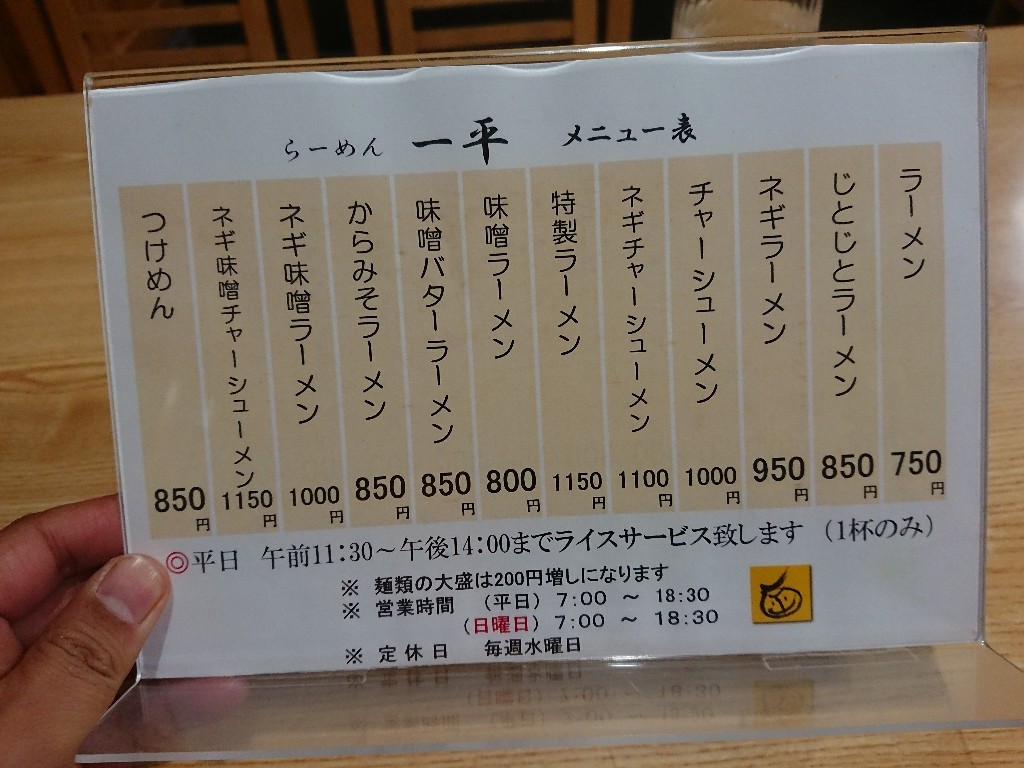 らーめん 一平 メニュー表
ラーメン 750円
じとじとラーメン 850円
ネギラーメン 950円
チャーシューメン 1000円
ネギチャーシューメン 1100円
特製ラーメン 1150円
味噌ラーメン 800円
味噌バターラーメン 850円
からみそラーメン 850円
ネギ味噌ラーメン 1000円
ネギ味噌チャーシューメン 1150円
つけめん 850円
◎平日 午前11:30～午後14:00までライスサービス致します （1杯のみ）
※ 麺類の大盛は200円増しになります
※ 営業時間 （平日） 7:00 ～ 18:30
（日曜日） 7:00 ～ 18:30
※ 定休日 毎週水曜日